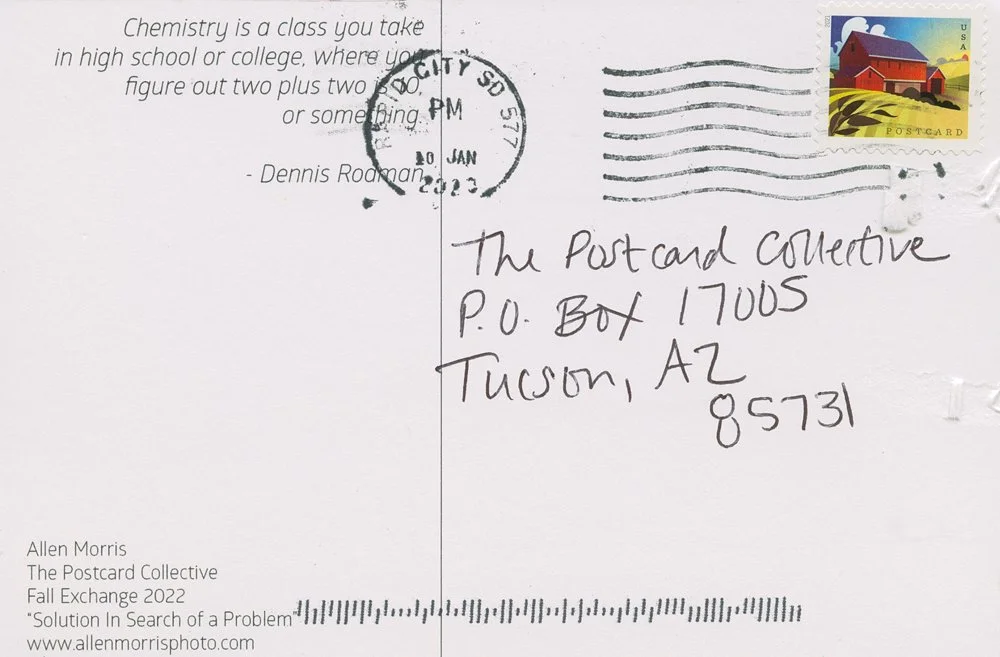 Chemistry is a class you take
in high school or college, where you
figure out two plus two is 10,
or something.
- Dennis Rodman
RAPID CITY SD 577
PM
10 JAN
2023
USA
POSTCARD
The Postcard Collective
P.O. Box 17005
Tucson, AZ
85731
Allen Morris
The Postcard Collective
Fall Exchange 2022
"Solution In Search of a Problem"
www.allenmorrisphoto.com